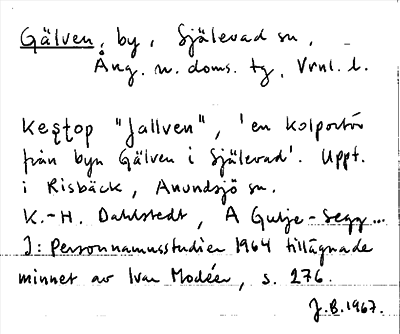 Gälven, by, Själevad sn,
Ång. n. doms. tg, Vrnl. l.
Kestop "Jallven", 'en kolportör
från byn Gälven i Själevad'. Uppt.
i Risbäck, Anundsjö sn.
K.-H. Dahlstedt, A Gulje-Segg...
I: Personnamnsstudier 1964 tillägnade
minnet av Ivar Modéer, s. 276.
J.B. 1967.